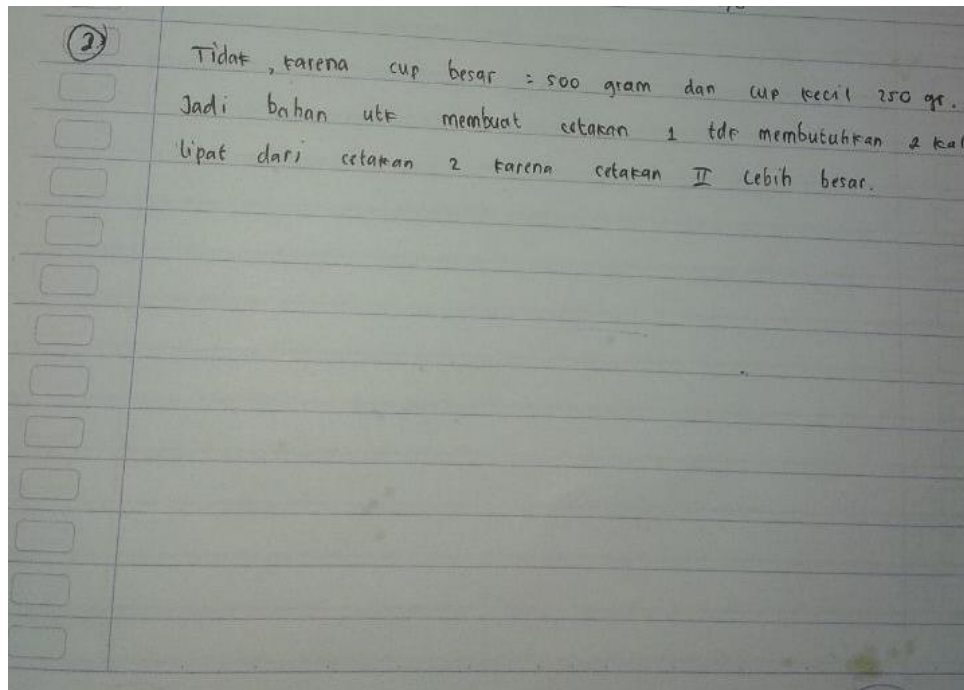 2
Tidak, karena cup besar = 500 gram dan cup kecil 250 gr.
Jadi bahan utk membuat cetakan 1 tdk membutuhkan 2 kal
lipat dari cetakan 2 karena cetakan II lebih besar.